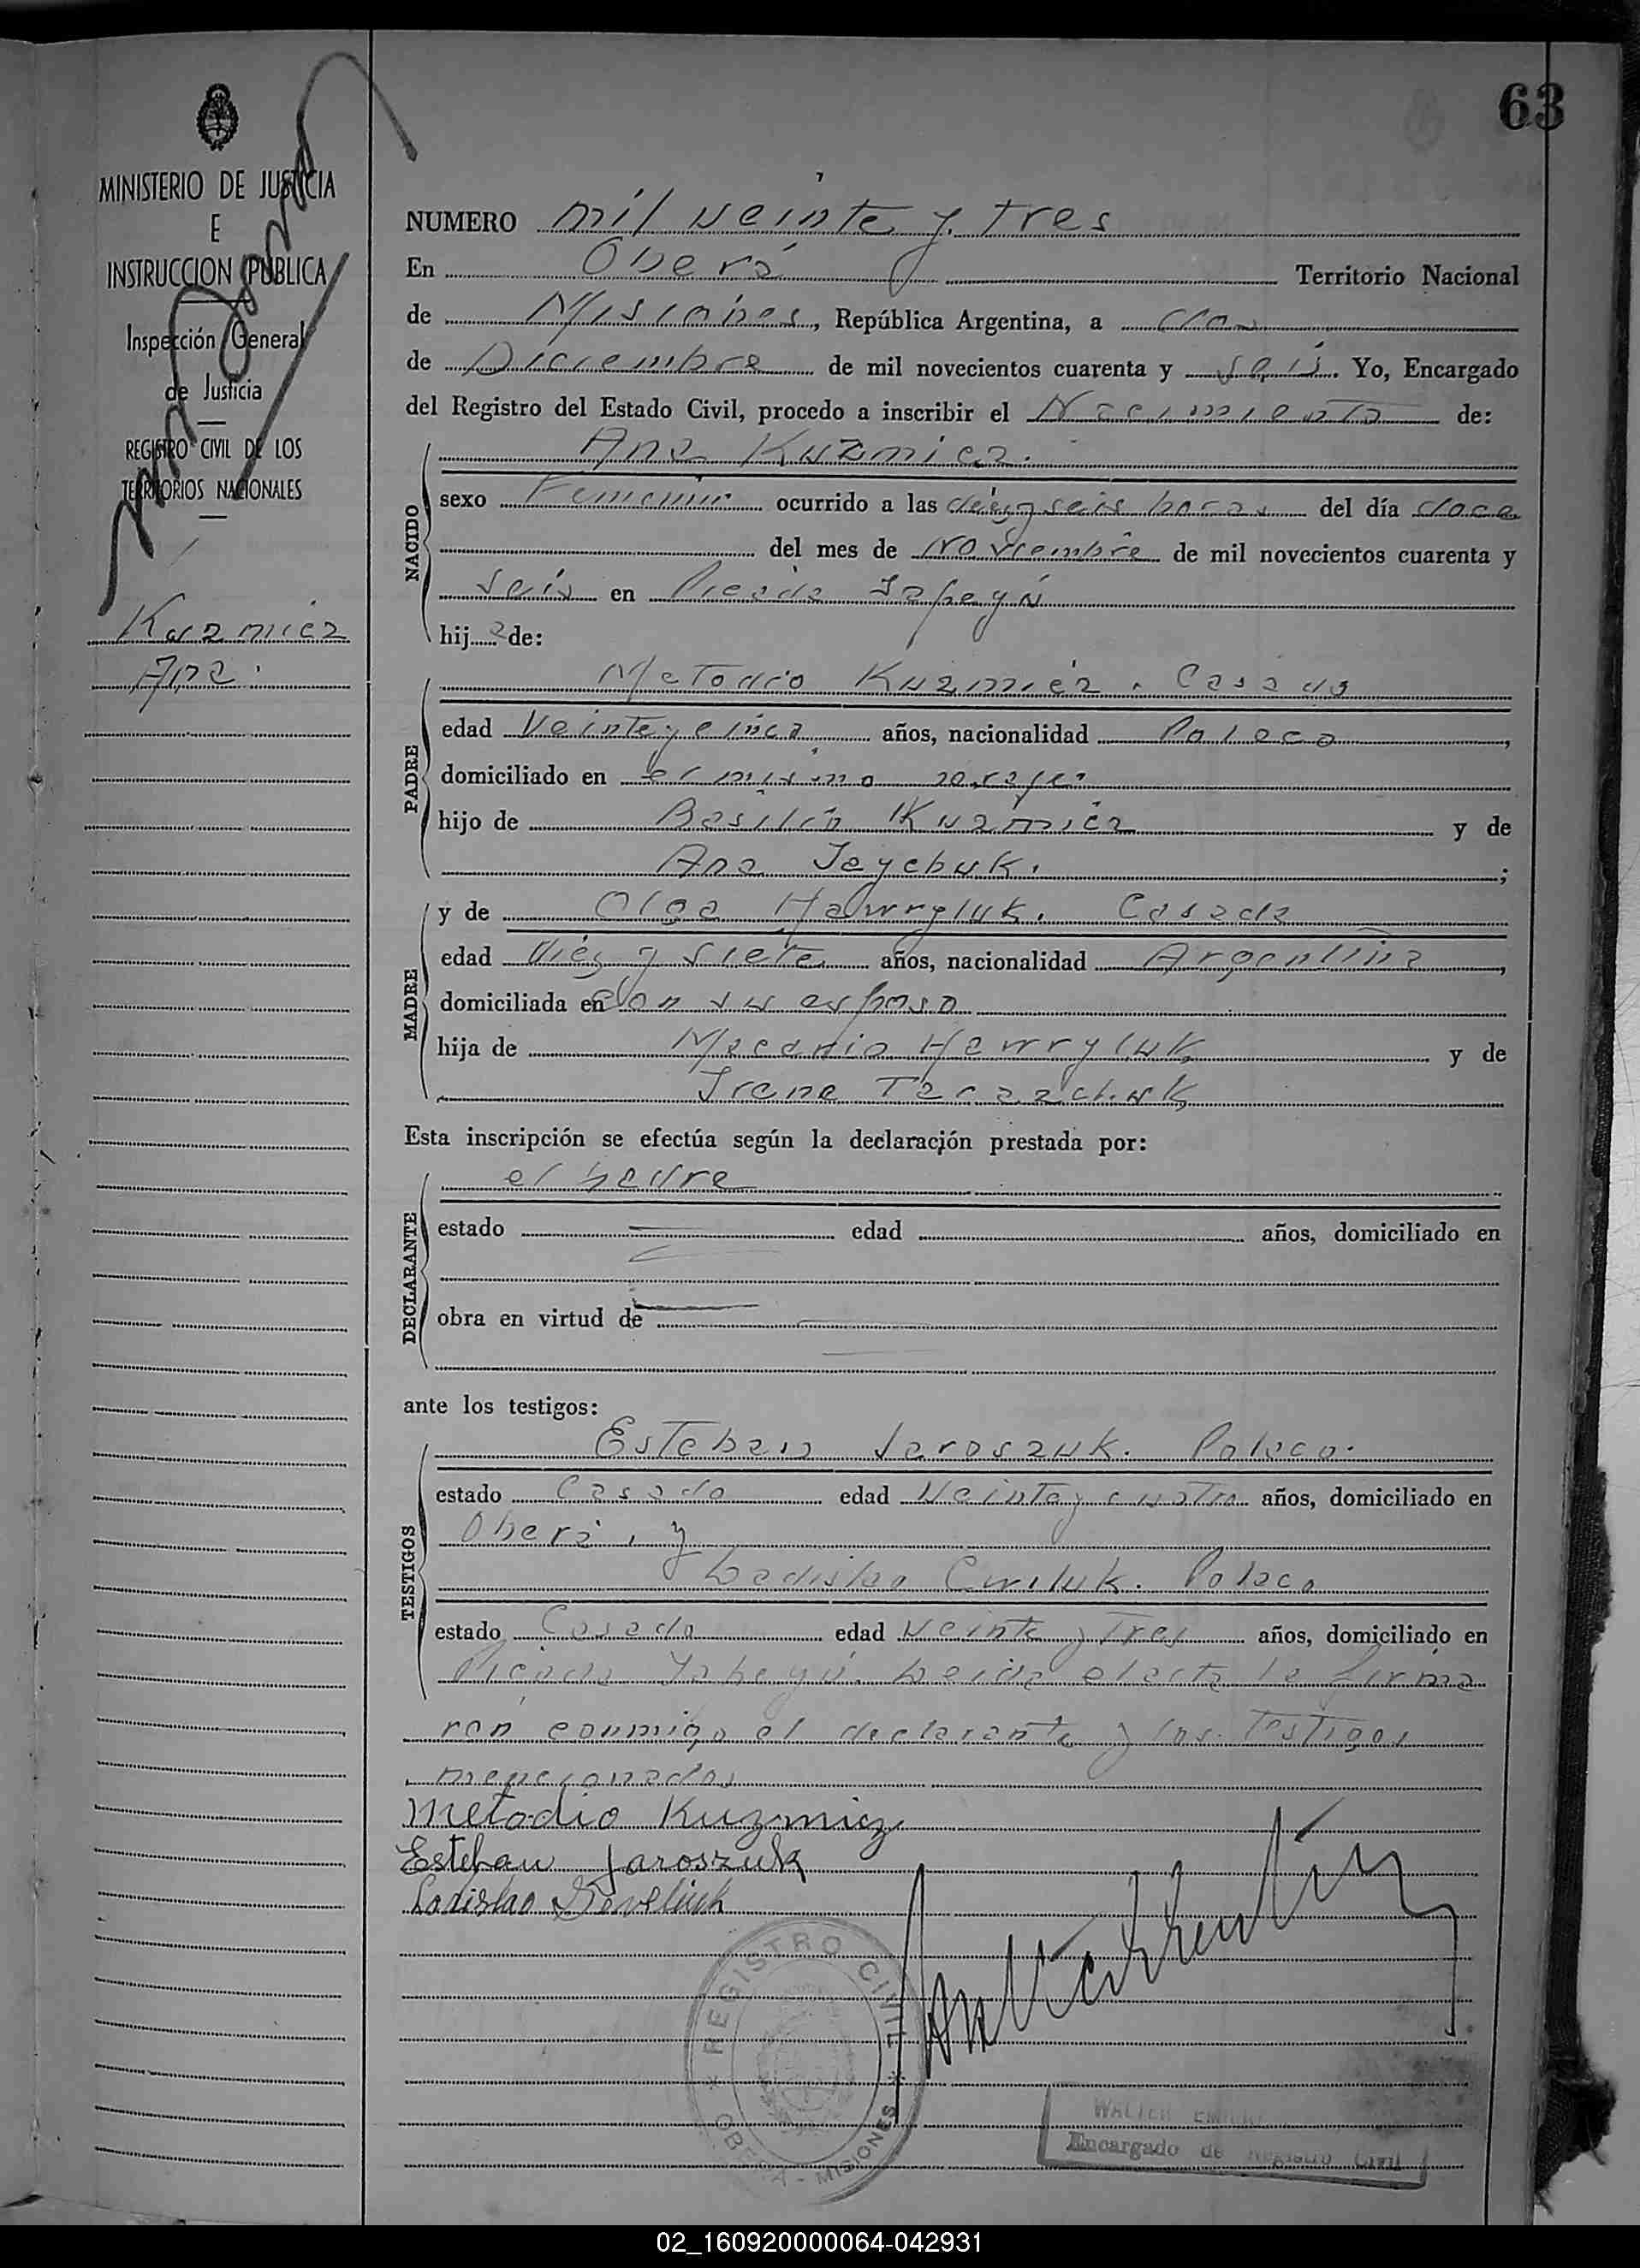 63
MINISTERIO DE JUSTICIA
E
INSTRUCCION PUBLICA
Inspección General
de Justicia
REGISTRO CIVIL DE LOS
TERRITORIOS NACIONALES
Kuzmicz
Ana.
NUMERO mil veinte y tres
En Oberá Territorio Nacional
de Misiones, República Argentina, a dos
de Diciembre de mil novecientos cuarenta y seis. Yo, Encargado
del Registro del Estado Civil, procedo a inscribir el Nacimiento de:
NACIDO
Ana Kuzmicz.
sexo Femenino ocurrido a las diez y seis horas del día doce
del mes de noviembre de mil novecientos cuarenta y
seis en Picada Yapeyú
hija de:
PADRE
Metodio Kuzmicz. Casado
edad Veinte y cinco años, nacionalidad Polaco,
domiciliado en el mismo paraje
hijo de Basilio Kuzmicz y de
Ana Jaychuk.;
MADRE
y de Olga Hawryluk. Casada
edad diez y siete años, nacionalidad Argentina,
domiciliada en con su esposo
hija de Hawryluk y de
Irene
Esta inscripción se efectúa según la declaración prestada por:
DECLARANTE
el padre
estado edad años, domiciliado en
obra en virtud de
ante los testigos:
TESTIGOS
Esteban Jaroszuk. Polaco.
estado Casado edad Veinte y cuatro años, domiciliado en
Oberá, y
Ladislao Polaco
estado Casado edad Veinte y tres años, domiciliado en
Picada Yapeyú. Leída el acta la firma
ron conmigo el declarante y los testigos
mencionados
Metodio Kuzmicz
Esteban Jaroszuk
Ladislao
REGISTRO CIVIL
OBERA - MISIONES
WALTER EMILIO
Encargado de Registro Civil
02_160920000064-042931